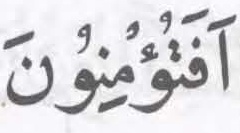 اَفَتُؤْمِنُوْنَ